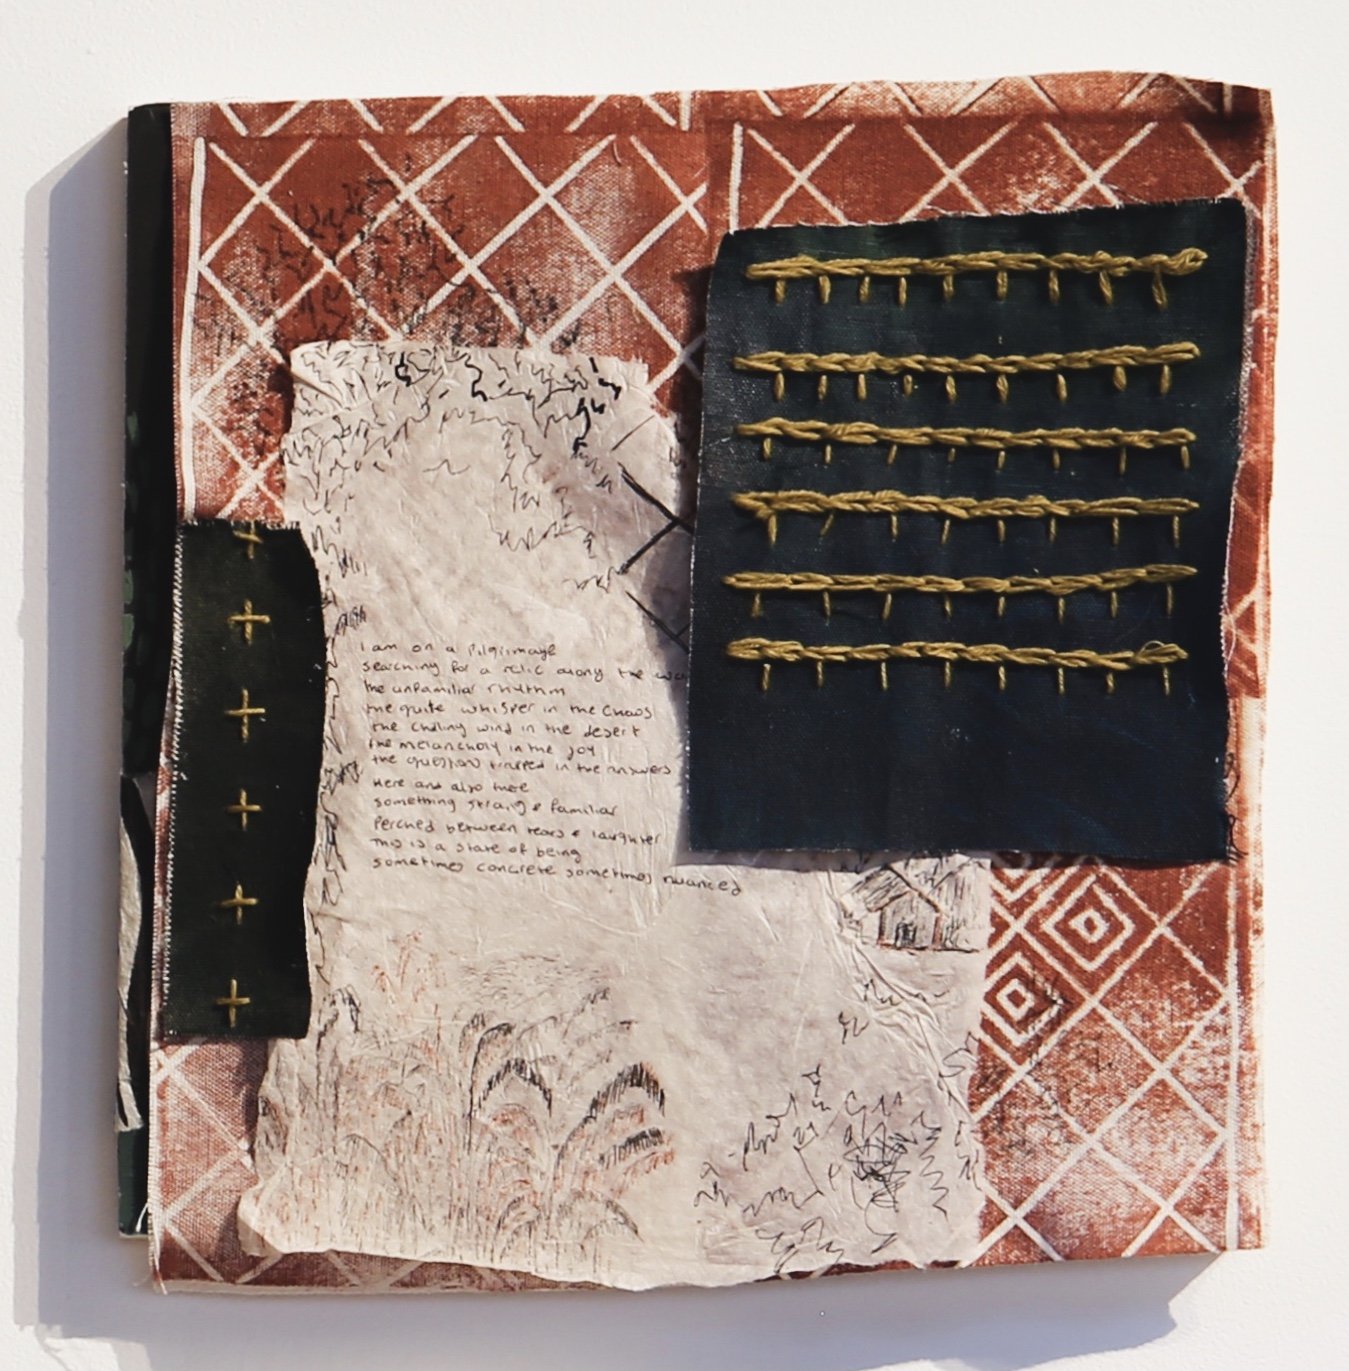 I am on a Pilgrimage
searching for a relic along the way
the unfamiliar rhythm
the quite whisper in the Chaos
the chilling wind in the desert
the melancholy in the Joy
the question trapped in the answers
Here and also there
something strang & familiar
Perched between tears & laughter
This is a state of being
sometimes concrete sometimes nuanced